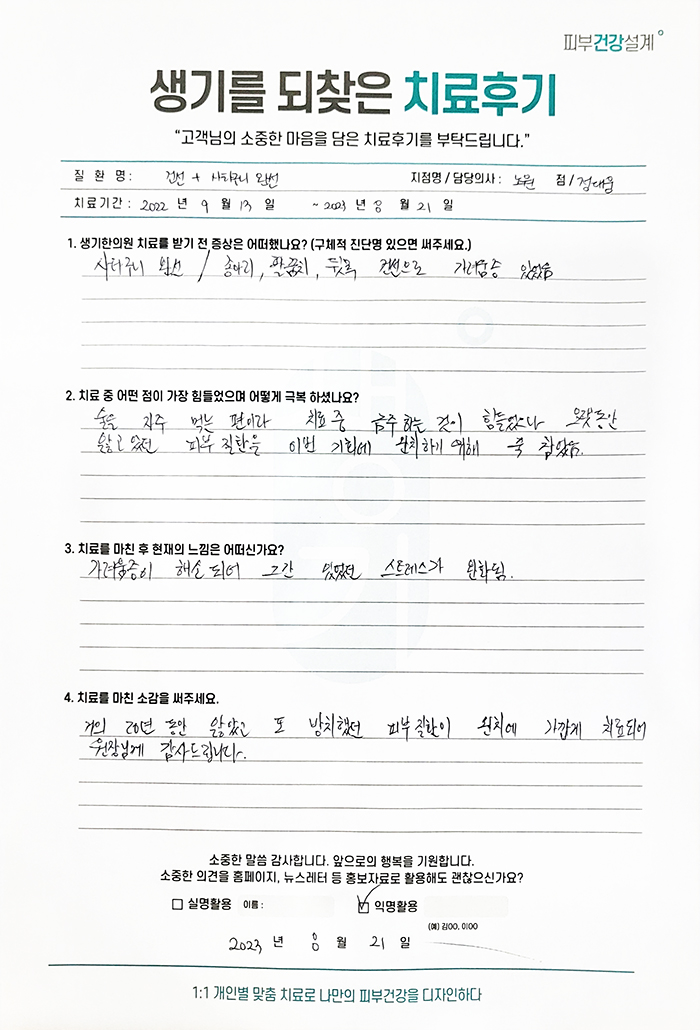 피부건강설계
생기를 되찾은 치료후기
"고객님의 소중한 마음을 담은 치료후기를 부탁드립니다."
질 환 명 : 건선 + 사타구니 완선 지점명 / 담당의사 : 노원 점 / 정대웅
치료기간 : 2022 년 9 월 13 일 ~ 2023 년 8 월 21 일
1. 생기한의원 치료를 받기 전 증상은 어떠했나요? (구체적 진단명 있으면 써주세요.)
사타구니 완선 / 종아리, 팔꿈치, 뒷목 건선으로 가려움증 있었음
2. 치료 중 어떤 점이 가장 힘들었으며 어떻게 극복 하셨나요?
술을 자주 먹는 편이라 치료 중 금주하는 것이 힘들었으나 오랫동안
앓고 있던 피부 질환을 이번 기회에 완치하기 위해 꾹 참았음.
3. 치료를 마친 후 현재의 느낌은 어떠신가요?
가려움증이 해소되어 그간 있었던 스트레스가 완화됨.
4. 치료를 마친 소감을 써주세요.
거의 20년 동안 앓았고 또 방치했던 피부질환이 완치에 가깝게 치료되어
원장님께 감사드립니다.
소중한 말씀 감사합니다. 앞으로의 행복을 기원합니다.
소중한 의견을 홈페이지, 뉴스레터 등 홍보자료로 활용해도 괜찮으신가요?
실명활용 이름 : 익명활용
(예) 김OO, 이OO
2023 년 8 월 21 일
1:1 개인별 맞춤 치료로 나만의 피부건강을 디자인하다